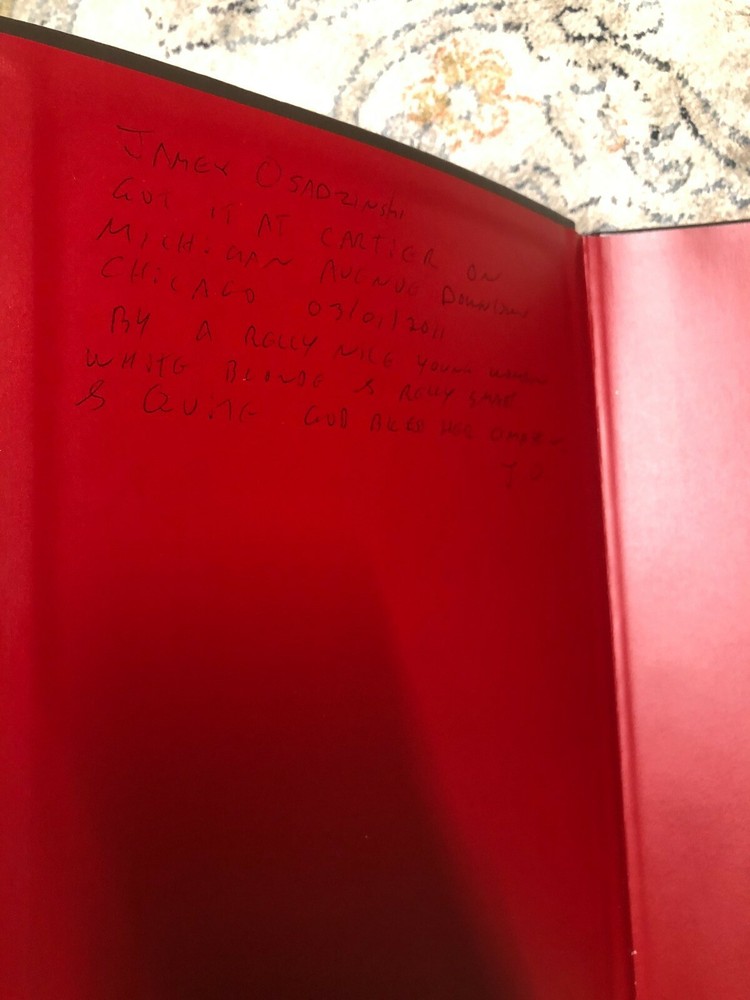 JAMEY OSADZINSKI
GOT IT AT CARTIER ON
MICHIGAN AVENUE DOWNTOWN
CHICAGO 03/01/2011
BY A RELLY NICE YOUNG WOMEN
WHITE BLONDE & RELLY SMART
& QUITE GOD BLESS HER
J O